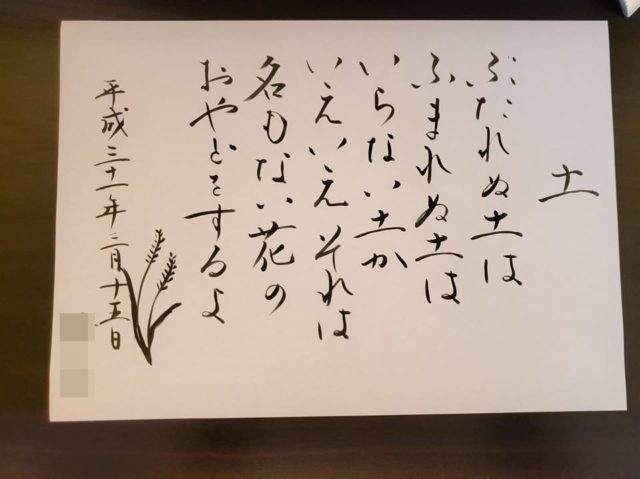 土
ぶたれぬ土は
ふまれぬ土は
いらない土か
いえいえそれは
名もない花の
おやどをするよ
平成三十一年三月十五日